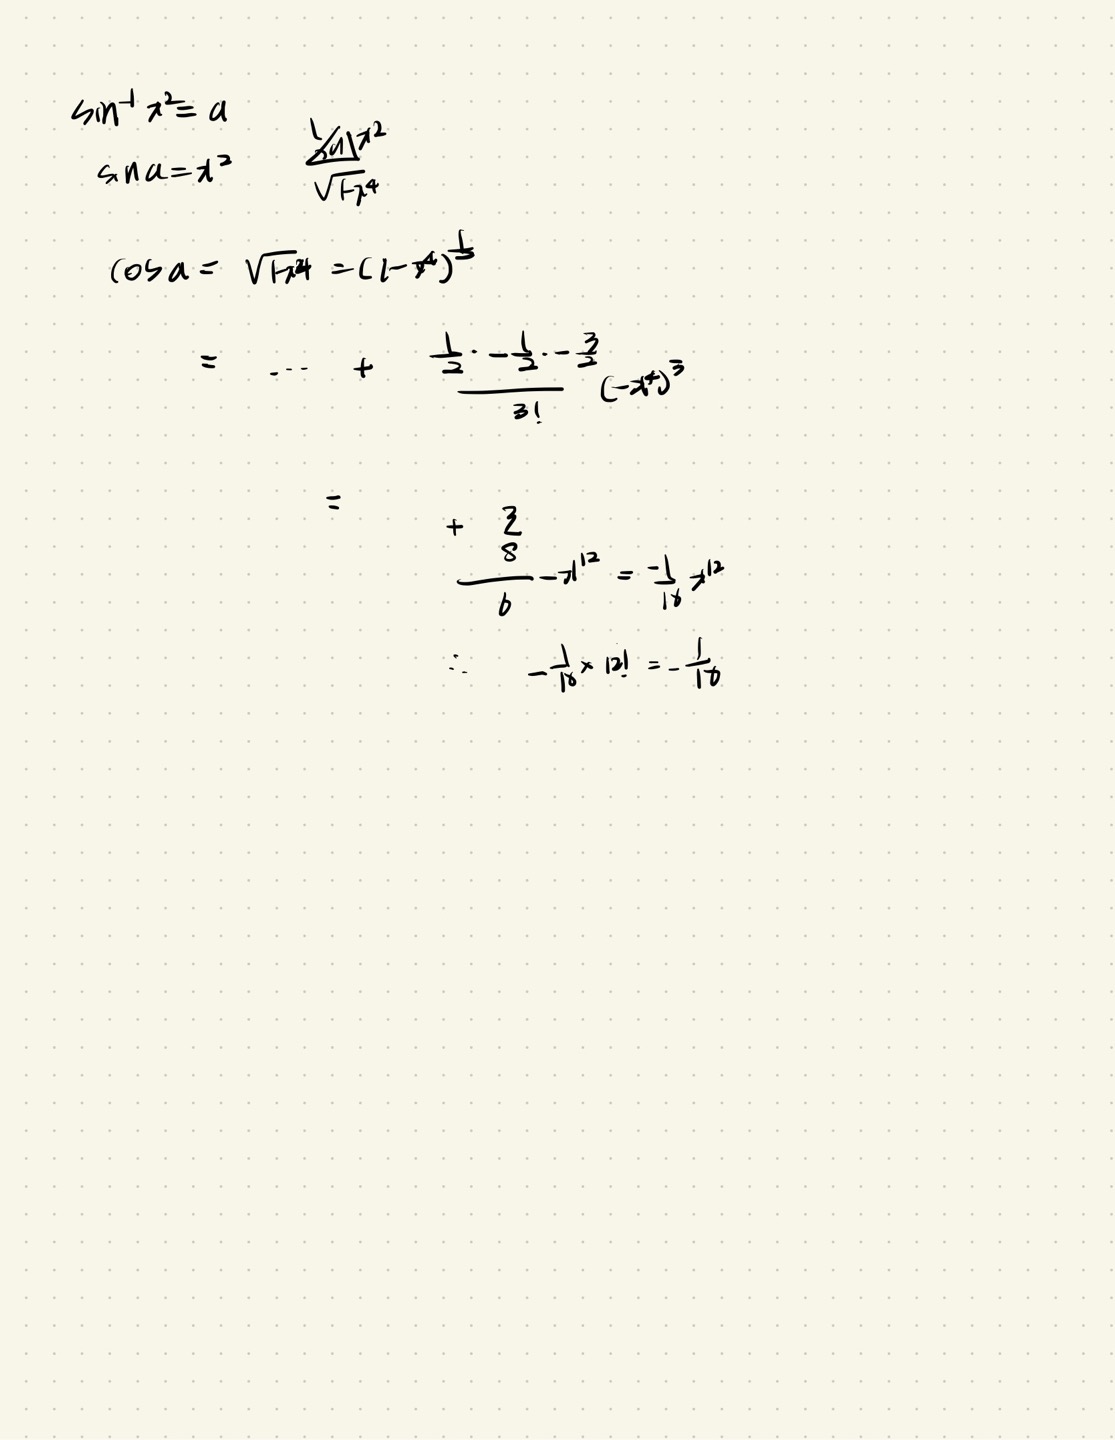 sin⁻¹ x² = a
sin a = x²
1 a x²
√1-x⁴
cos a = √1-x⁴ = (1-x⁴)^½
= ... + ½ · -½ · -3/2 / 3! (-x⁴)³
= + 3/8 / 6 -x¹² = -1/16 x¹²
∴ -1/16 × 12! = -1/16